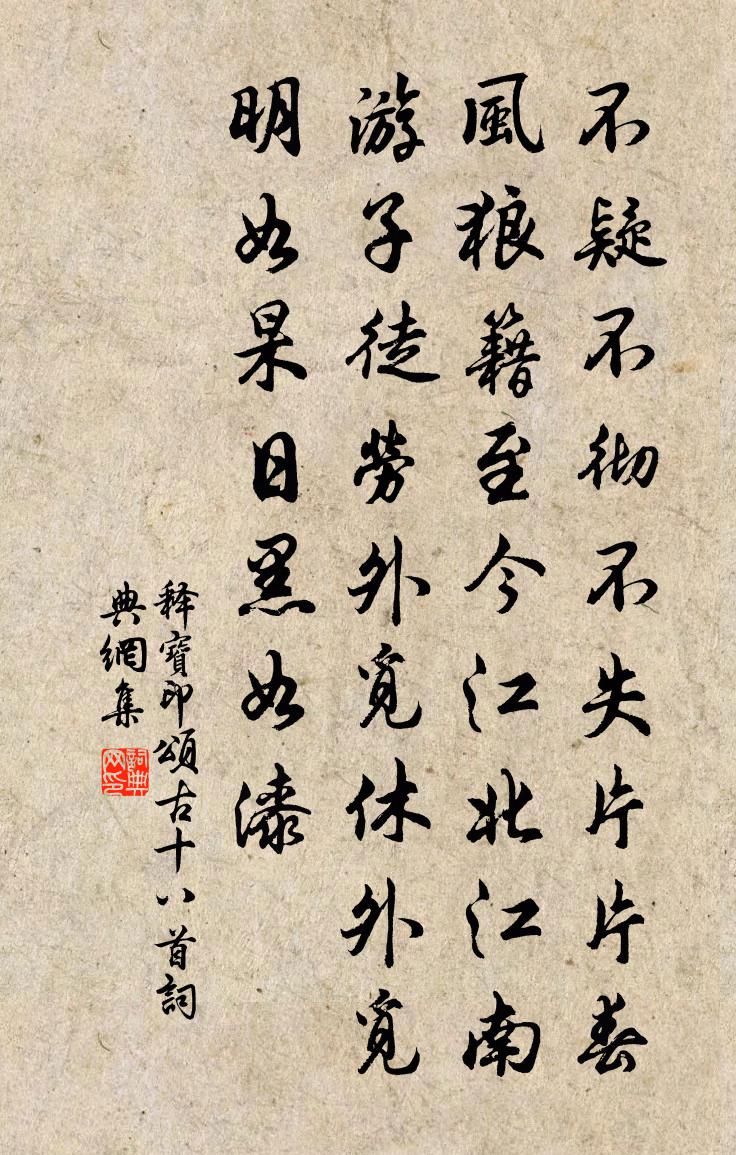 不疑不彻不失片片春
風狼籍至今江北江南
游子徒勞外覓休外覓
明如杲日黑如漆
释寶印頌古十八首詞
典網集
詞典網印